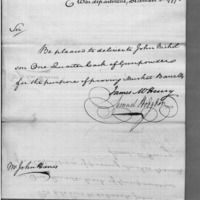 War department,
Sir
Be pleased to deliver to John Nichol
son One Quarter cask of Gunpowder
for the purpose of proving Musket Barrells
James McHenry
Samuel Hodgdon
Mr John Harris